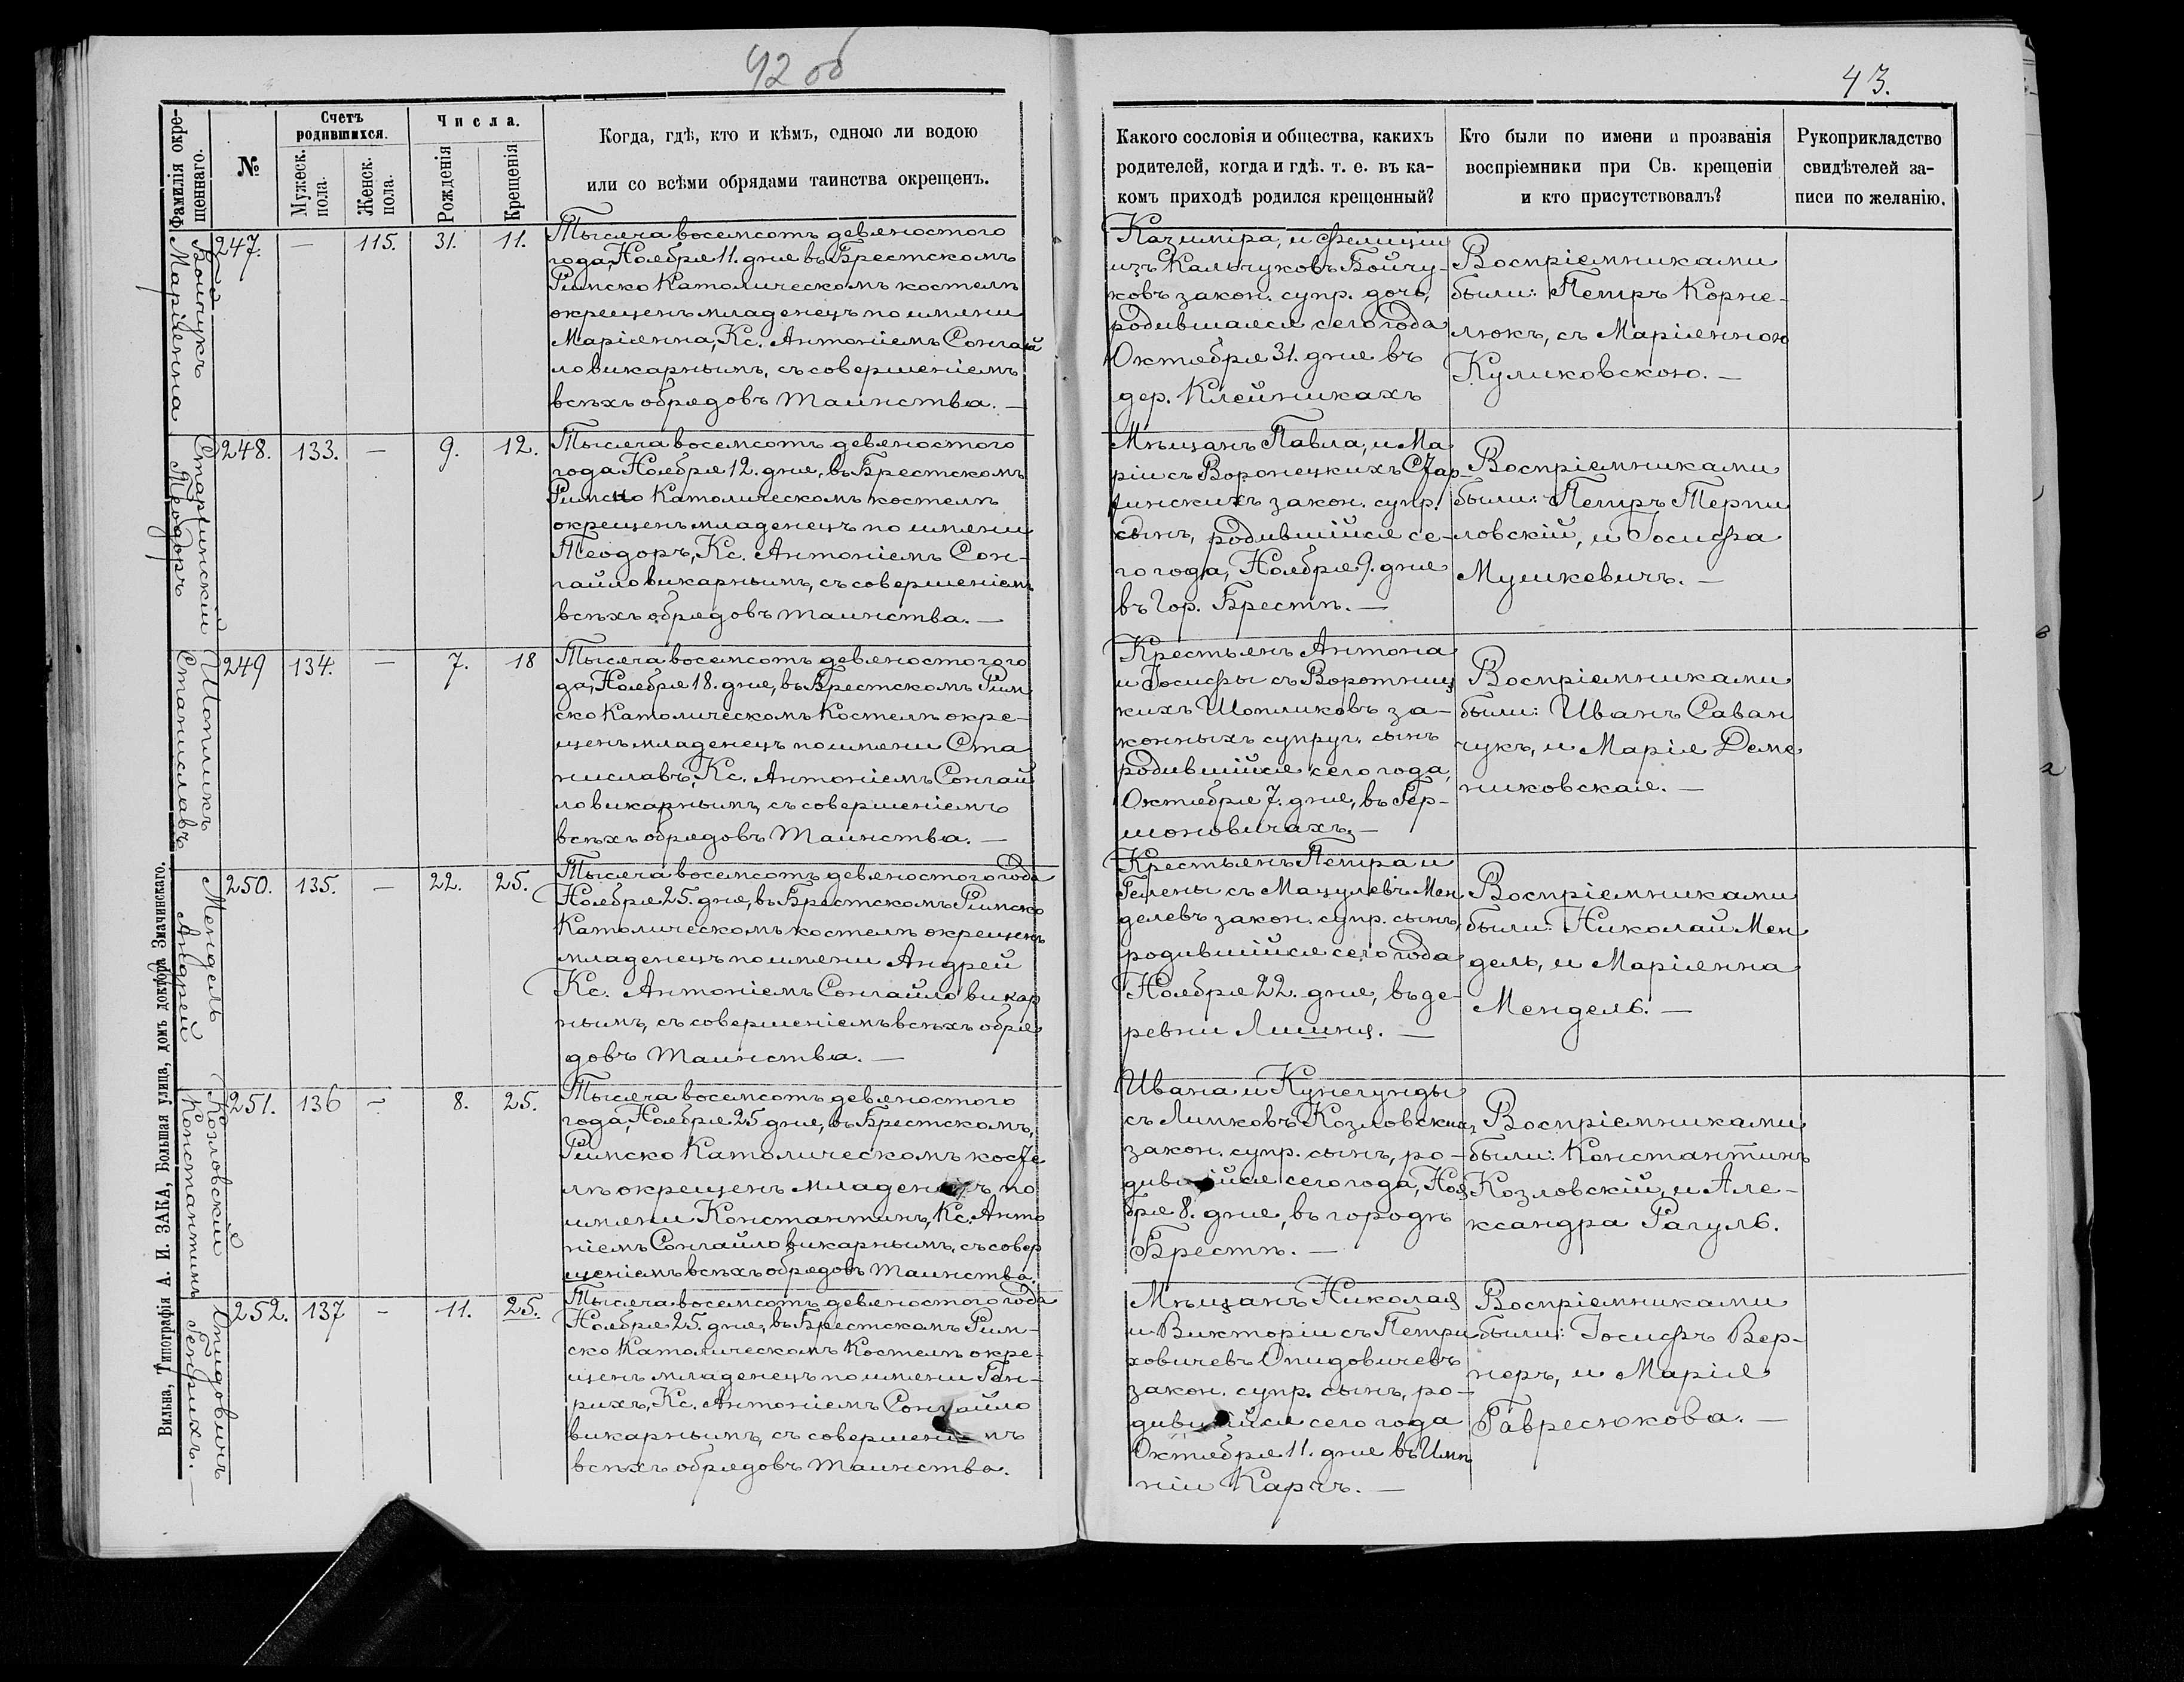 42 об
43.
Фамилія окре-
щеннаго.
№
Счетъ
родившихся.
Мужеск.
пола.
Женск.
пола.
Числа.
Рожденія
Крещенія
Когда, гдѣ, кто и кѣмъ, одною ли водою
или со всѣми обрядами таинства окрещенъ.
Какого сословія и общества, какихъ
родителей, когда и гдѣ. т. е. въ ка-
комъ приходѣ родился крещенный?
Кто были по имени и прозванія
воспріемники при Св. крещеніи
и кто присутствовалъ?
Рукоприкладство
свидѣтелей за-
писи по желанію.
Бойчукъ
Маріянна
247. — 115. 31. 11.
Тысяча восемсотъ девяностого
года, Ноября 11. дня въ Брестскомъ
Римско Католическомъ костелѣ
окрещенъ младенецъ по имени
Маріянна, Кс. Антоніемъ Сонгай
ло викарнымъ, съ совершеніемъ
всѣхъ обрядовъ Таинства. —
Казиміра, и Фелиціи
изъ Кальчуковъ Бойчу-
ковъ закон. супр. дочь,
родившаяся сего года
Октября 31. дня въ
дер. Клейникахъ
Воспріемниками
были: Петръ Корне-
люкъ, съ Маріянною
Куликовскою. —
Старжинскій
Теодоръ
248. 133. — 9. 12.
Тысяча восемсотъ девяностого
года Ноября 12. дня, въ Брестскомъ
Римско Католическомъ костелѣ
окрещенъ младенецъ по имени
Теодоръ, Кс. Антоніемъ Сон-
гайло викарнымъ, съ совершеніемъ
всѣхъ обрядовъ таинства. —
Мѣщанъ Павла, и Ма
ріи съ Воронецкихъ Стар-
жинскихъ закон. супр.
сынъ, родившійся се-
го года, Ноября 9. дня
въ Гор. Брестѣ. —
Воспріемниками
были: Петръ Терпи
ловскій, и Іосифа
Мушкевичъ. —
Шопликъ
Станиславъ
249 134. — 7. 18
Тысяча восемсотъ девяностого го
да, Ноября 18. дня, въ Брестскомъ Рим
ско Католическомъ Костелѣ окре-
щенъ младенецъ по имени Ста
ниславъ, Кс. Антоніемъ Сонгай
ло викарнымъ, съ совершеніемъ
всѣхъ обрядовъ Таинства. —
Крестьянъ Антона
и Іосифы съ Воротниц
кихъ Шопликовъ за-
конныхъ супруг. сынъ
родившійся сего года,
Октября 7. дня, въ Гер-
шоновичахъ, —
Воспріемниками
были: Иванъ Саван
чукъ, и Марія Деме
никовская. —
Мендель
Андрей
250. 135. — 22. 25.
Тысяча восемсотъ девяностого года
Ноября 25. дня, въ Брестскомъ Римско
Католическомъ костелѣ окрещенъ
младенецъ по имени Андрей
Кс. Антоніемъ Сонгайло викар
нымъ, съ совершеніемъ всѣхъ обря
довъ Таинства. —
Крестьянъ Петра и
Гелены съ Мацулевъ Мен
делевъ закон. супр. сынъ,
родившійся сего года
Ноября 22. дня, въ де-
ревни Лишня. —
Воспріемниками
были: Николай Мен
дель, и Маріянна
Мендель. —
Козловскій
Константинъ
251. 136 - 8. 25.
Тысяча восемсотъ девяностого
года, Ноября 25 дня, въ Брестскомъ,
Римско Католическомъ косте
лѣ окрещенъ младенецъ по
имени Константинъ, Кс. Анто
ніемъ Сонгайло викарнымъ, съ совер
шеніемъ всѣхъ обрядовъ Таинства.
Ивана и Кунегунды
съ Липковъ Козловскихъ
закон. супр. сынъ, ро-
дившійся сего года, Ноя
бря 8. дня, въ городѣ
Брестѣ. —
Воспріемниками
были: Константинъ
Козловскій, и Але-
ксандра Рагуль.
Опидовичъ
Генрихъ. —
252. 137 - 11. 25.
Тысяча восемсотъ девяностого года
Ноября 25. дня, въ Брестскомъ Рим-
ско Католическомъ Костелѣ окре-
щенъ младенецъ по имени Ген-
рихъ, Кс. Антоніемъ Сонгайло
викарнымъ, съ совершеніемъ
всѣхъ обрядовъ Таинства.
Мѣщанъ Николая
и Викторіи съ Петри
ховичевъ Опидовичевъ
закон. супр. сынъ, ро-
дившійся сего года
Октября 11. дня въ Имѣ
ніи Карчъ. —
Воспріемниками
были: Іосифъ Вер-
неръ, и Марія
Гавресюкова. —
Вильна, Типографія А. И. ЗАКА, Большая улица, домъ доктора Значинскаго.